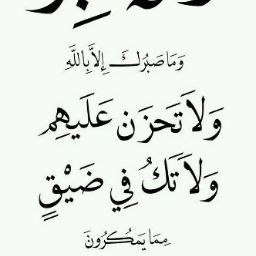 وَمَا صَبْرُكَ إِلاَّ بِاللَّهِ
وَلاَ تَحْزَن عَلَيهِم
وَلاَ تَكُ فِي ضَيْقٍ
مِمَّا يَمكُرُونَ